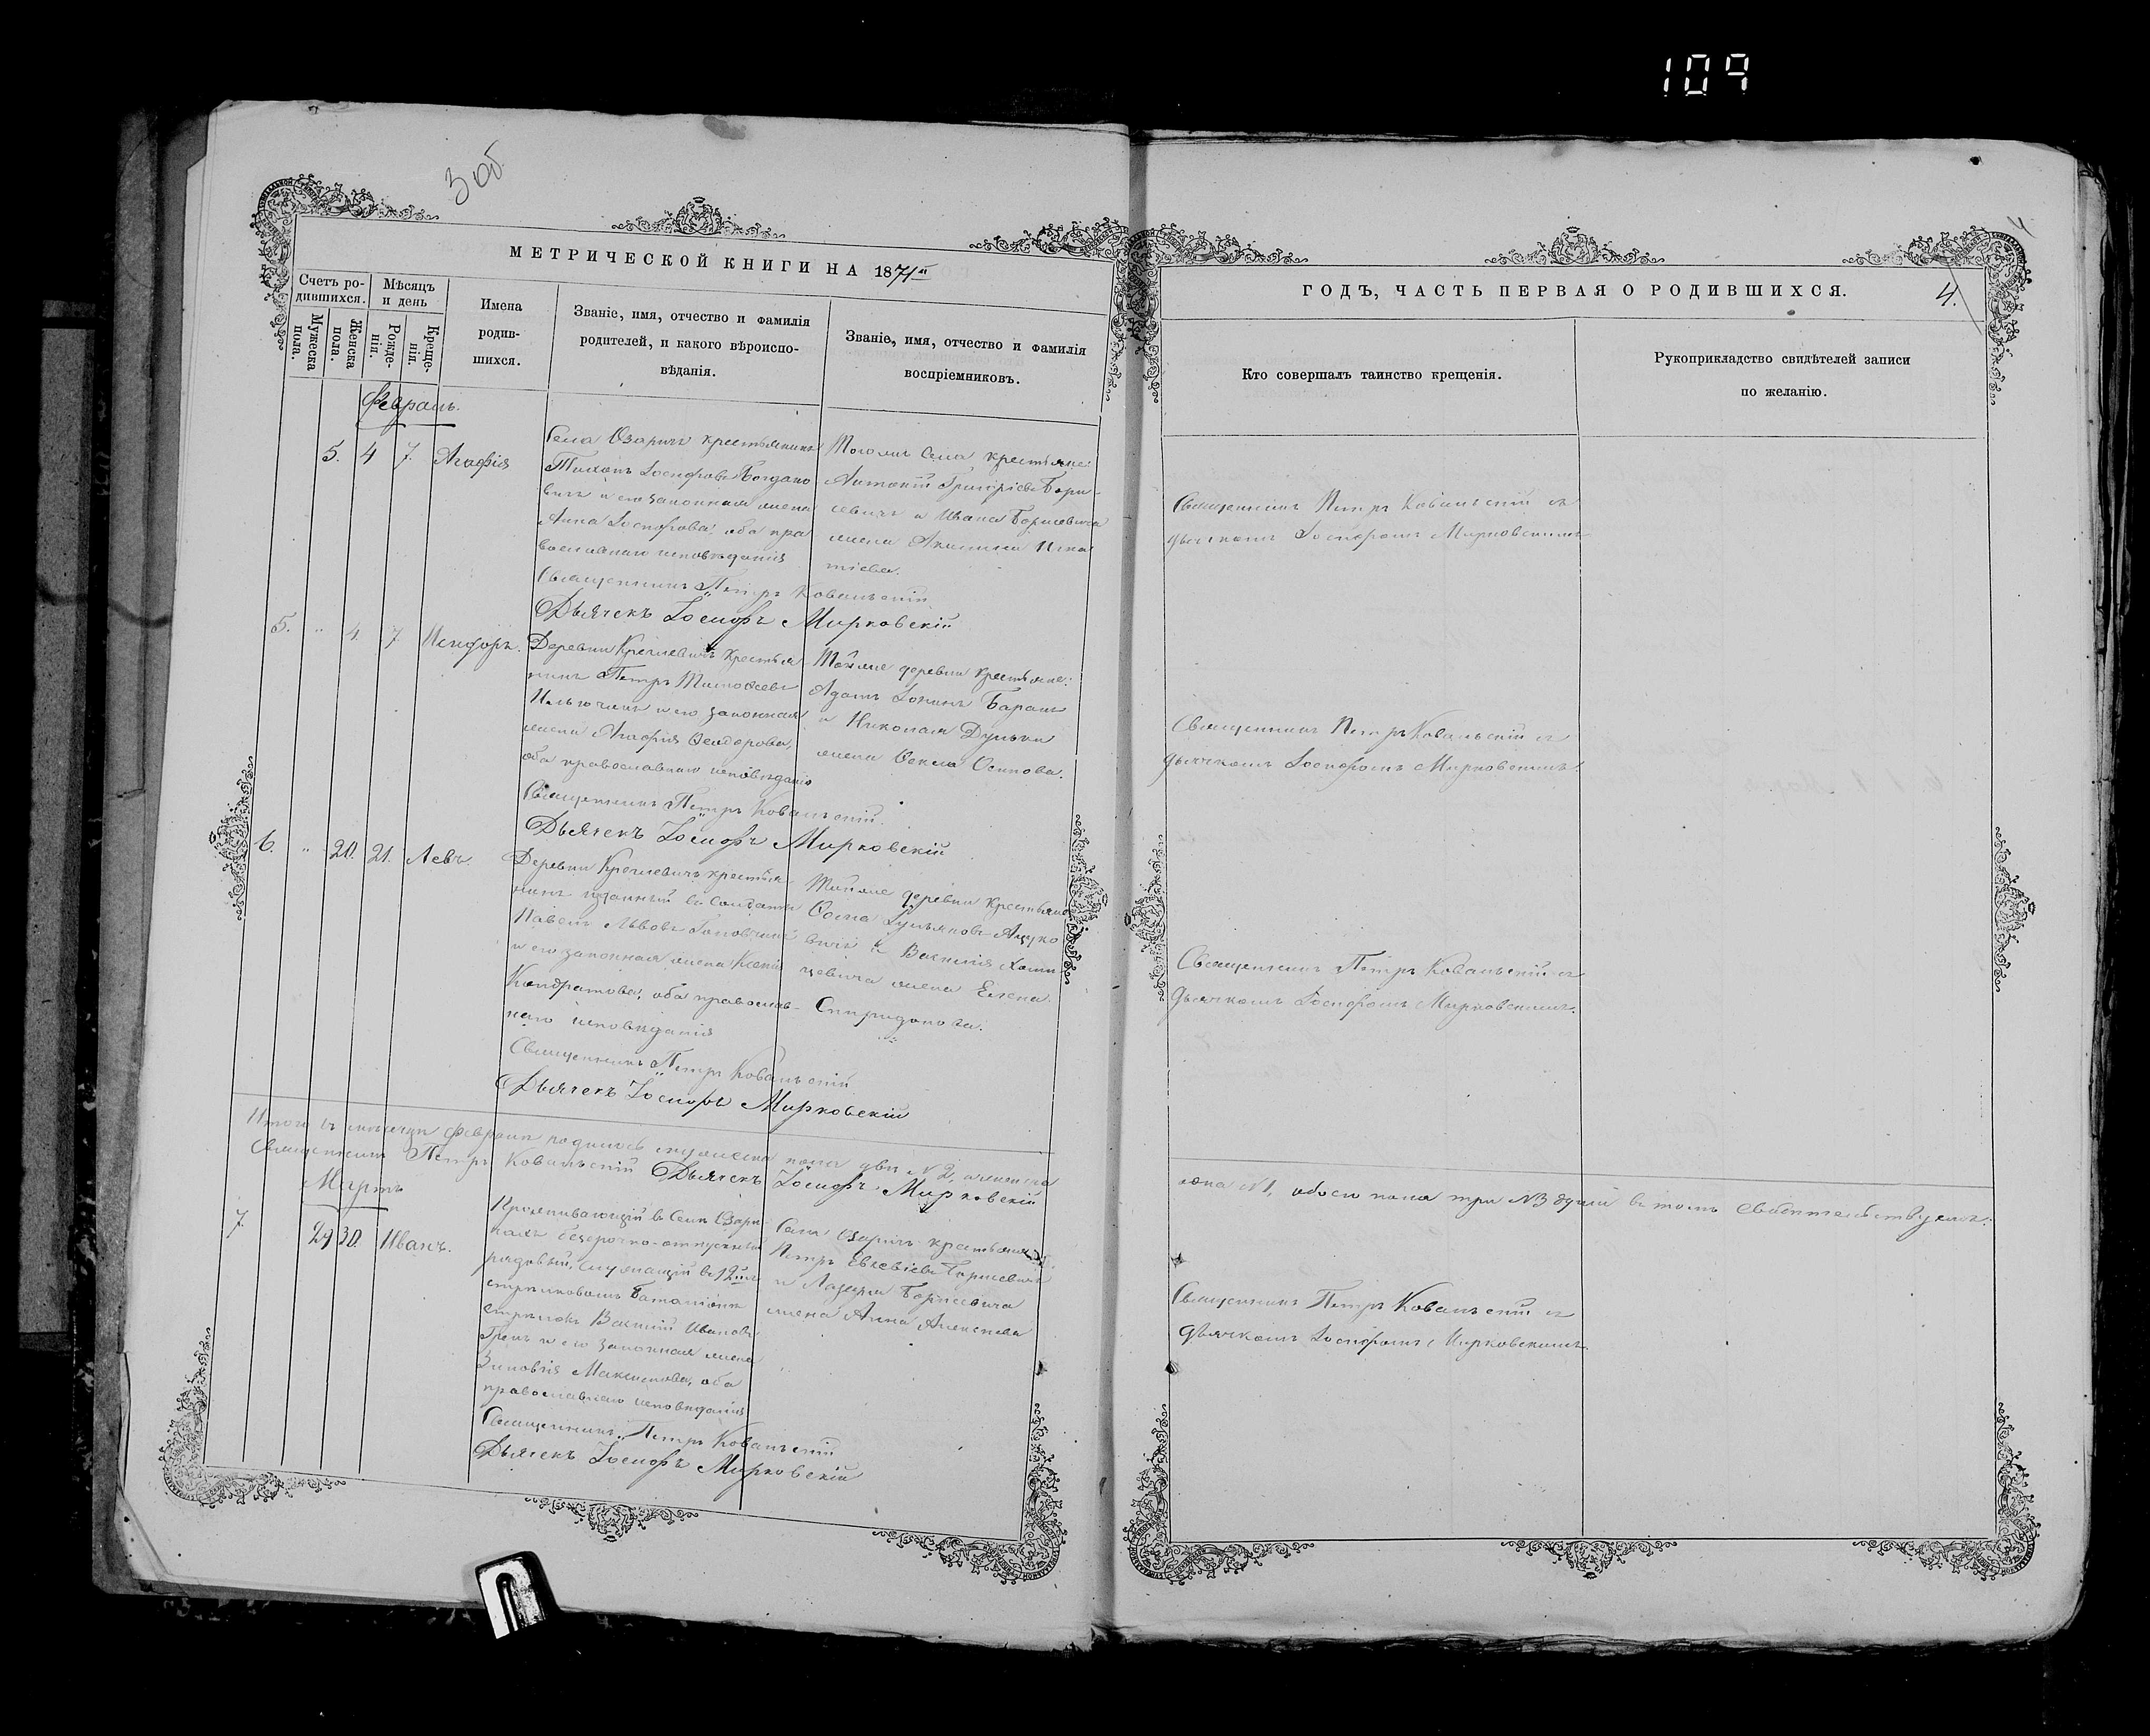 109
3об.
МЕТРИЧЕСКОЙ КНИГИ НА 1871й
Счетъ ро-
дившихся.
Мѣсяцъ
и день
Мужеска
пола.
Женска
пола.
Рожде-
нія.
Креще-
нія.
Имена
родив-
шихся.
Званіе, имя, отчество и фамилія
родителей, и какого вѣроиспо-
вѣданія.
Званіе, имя, отчество и фамилія
воспріемниковъ.
Февраль.
5. 4 7. Агафія
Села Озаричъ крестьянинъ
Тихонъ Іосифовъ Богдано
вичъ и его законная жена
Анна Іосифова, оба пра
вославнаго исповѣданія
Священникъ Петръ Ковальскій
Дьячекъ Іосифъ Мирковскій
Тогожъ села крестьяне:
Антоній Григоріевъ Бори-
севичъ и Ивана Борисевича
жена Акилина Игна
тіева.
5. " 4. 7. Никифоръ.
Деревни крестья
нинъ Петръ Тимоѳеевъ
и его законная
жена Агафія Ѳеодорова,
оба православнаго исповѣданія
Священникъ Петръ Ковальскій.
Дьячекъ Іосифъ Мирковскій
Тойже деревни крестьяне:
Адамъ Баранъ
и Николая
жена Ѳекла Осипова.
6. " 20. 21. Левъ.
Деревни крестья
нинъ въ солдаты
Павелъ Львовъ
и его законная жена Ксенія
Кондратова, оба православ-
наго исповѣданія
Священникъ Петръ Ковальскій
Дьячекъ Іосифъ Мирковскій
Тойже деревни крестьяне
Ѳома
вичъ и Василія
цевича жена Елена
Спиридонова.
Итого въ мѣсяцѣ Февралѣ родилось мужеска пола два №2, женска
Священникъ Петръ Ковальскій Дьячекъ Іосифъ Мирковскій
Мартъ
7. 29 30. Иванъ.
Проживающій въ селѣ Озари-
чахъ безсрочно-отпускный
рядовый, служащій въ 12мъ
стрѣлковомъ баталіонѣ
стрѣлокъ Василій Ивановъ
и его законная жена
Зиновія Максимова, оба
православнаго исповѣданія
Священникъ Петръ Ковальскій
Дьячекъ Іосифъ Мирковскій
Села Озаричъ крестьяне:
Петръ Евсевіевъ Борисевичъ
и Лазаря Борисевича
жена Анна Алексѣева
ГОДЪ, ЧАСТЬ ПЕРВАЯ О РОДИВШИХСЯ.
4.
Кто совершалъ таинство крещенія.
Рукоприкладство свидѣтелей записи
по желанію.
Священникъ Петръ Ковальскій съ
дьячкомъ Іосифомъ Мирковскимъ
Священникъ Петръ Ковальскій съ
дьячкомъ Іосифомъ Мирковскимъ.
Священникъ Петръ Ковальскій съ
дьячкомъ Іосифомъ Мирковскимъ.
одна №1, обоего пола три №3 душъ въ томъ свидѣтельствуемъ:
Священникъ Петръ Ковальскій съ
дьячкомъ Іосифомъ Мирковскимъ.